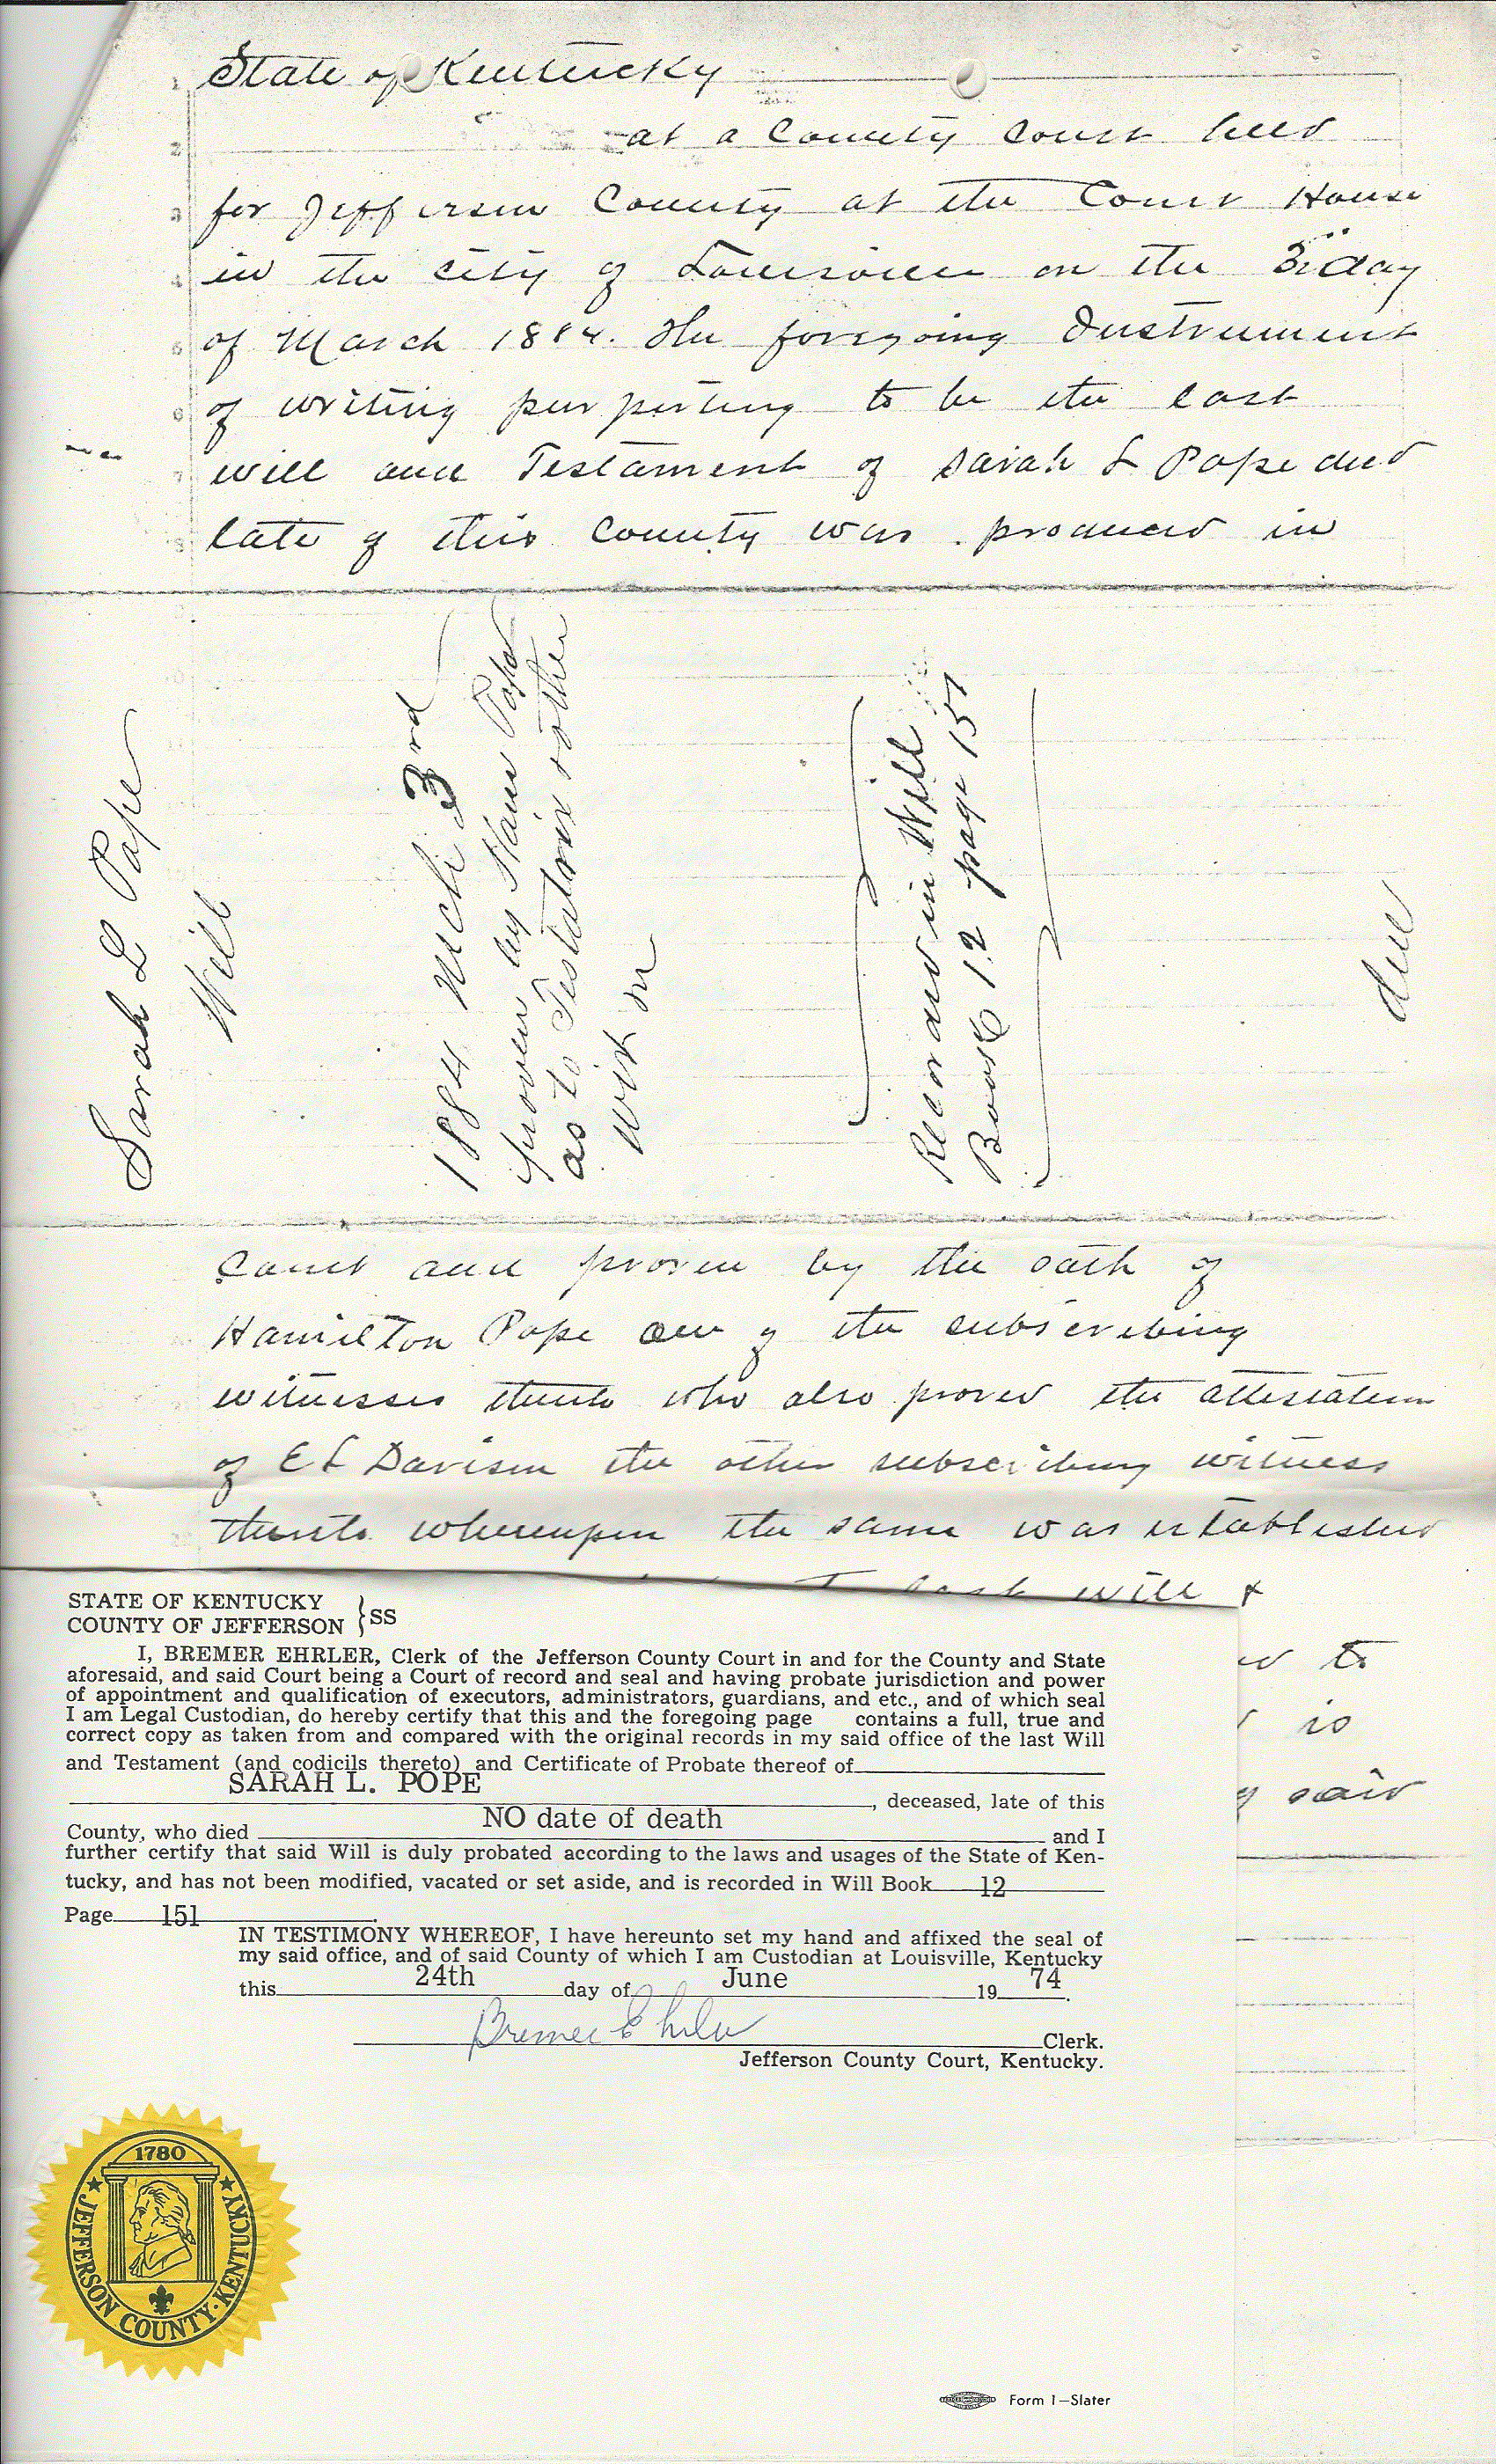 State of Kentucky
at a County Court held
for Jefferson County at the Court House
in the city of Louisville on the 3d day
of March 1884. The foregoing Instrument
of writing purporting to be the last
will and Testament of Sarah L Pope decd
late of this County was produced in
Sarah L Pope
Will
1884 Mch 3rd
proven by Ham Pope
as to Testatrix & other
wit
Recorded in Will
Book 12 page 151
Court and proven by the oath of
Hamilton Pope one of the subscribing
witnesses thereto who also proved the attestation
of E L Davison the other subscribing witness
thereto whereupon the same was established
last will &
to
is
said
STATE OF KENTUCKY
COUNTY OF JEFFERSON } SS
I, BREMER EHRLER, Clerk of the Jefferson County Court in and for the County and State
aforesaid, and said Court being a Court of record and seal and having probate jurisdiction and power
of appointment and qualification of executors, administrators, guardians, and etc., and of which seal
I am Legal Custodian, do hereby certify that this and the foregoing page contains a full, true and
correct copy as taken from and compared with the original records in my said office of the last Will
and Testament (and codicils thereto) and Certificate of Probate thereof of
SARAH L. POPE, deceased, late of this
County, who died NO date of death and I
further certify that said Will is duly probated according to the laws and usages of the State of Ken-
tucky, and has not been modified, vacated or set aside, and is recorded in Will Book 12
Page 151.
IN TESTIMONY WHEREOF, I have hereunto set my hand and affixed the seal of
my said office, and of said County of which I am Custodian at Louisville, Kentucky
this 24th day of June 19 74.
Bremer Ehrler Clerk.
Jefferson County Court, Kentucky.
1780
JEFFERSON COUNTY · KENTUCKY
Form 1—Slater